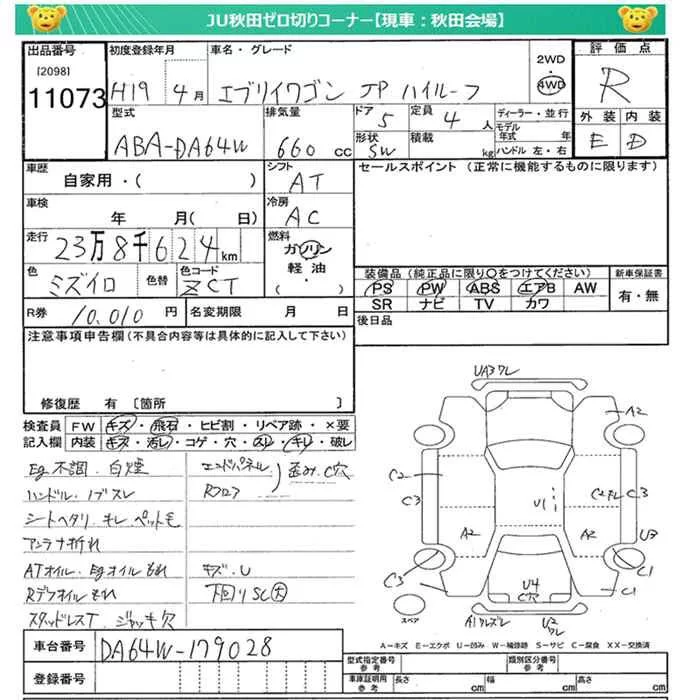 JU秋田ゼロ切りコーナー【現車：秋田会場】
出品番号 初度登録年月 車名・グレード 2WD 4WD 評価点
[2098]
11073 H19 4月 エブリイワゴン JP ハイルーフ R
型式 排気量 ドア 5 定員 4人 ディーラー・並行 外装 内装
ABA-DA64W 660cc 形状 SW 積載 kg モデル年式 年 ハンドル 左・右 E D
車歴 自家用・( ) シフト AT セールスポイント (正常に機能するものに限ります)
車検 年 月( 日) 冷房 AC
走行 23万8千624km 燃料 ガソリン・軽油・
色 ミズイロ 色替 色コード ZCT 装備品 (純正品に限り○をつけてください) 新車保証書
PS PW ABS エアB AW 有・無
SR ナビ TV カワ
R券 10,010円 名変期限 月 日 後日品
注意事項申告欄(不具合内容等は具体的に記入して下さい)
修復歴 有 〔箇所 〕
検査員 FW キズ・飛石・ヒビ割・リペア跡・×要
記入欄 内装 キズ・汚レ・コゲ・穴・スレ・キレ・破レ
Eg不調.白煙 エンドパネル 歪み.C穴
ハンドル.ノブスレ Rフロア
シートヘタリ.キレ.ペット毛
アンテナ折れ
ATオイル.Egオイルもれ キズ.U
Rデフオイルもれ 下回りSC大
スタッドレスT.ジャッキ欠
UA3ワレ
A2
C2
C3
U1
C3
A2
A2
U3
C3
U4
C穴
C1
C1
スペア
U2
ワレ
A-キズ E-エクボ U-凹み W-補修跡 S-サビ C-腐食 XX-交換済
車台番号 DA64W-179028
型式指定番号 参考 類別区分番号 参考
登録番号 車庫証明用 参考 長さ cm 幅 cm 高さ cm